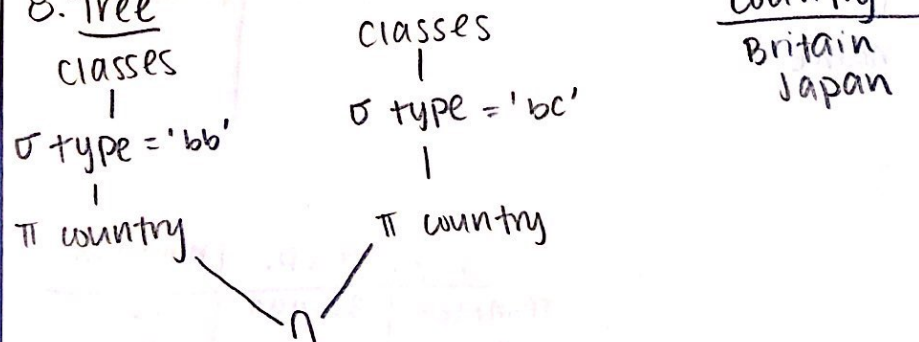 8. Tree
classes
σ type = 'bb'
π country
classes
σ type = 'bc'
π country
∩
country
Britain
Japan